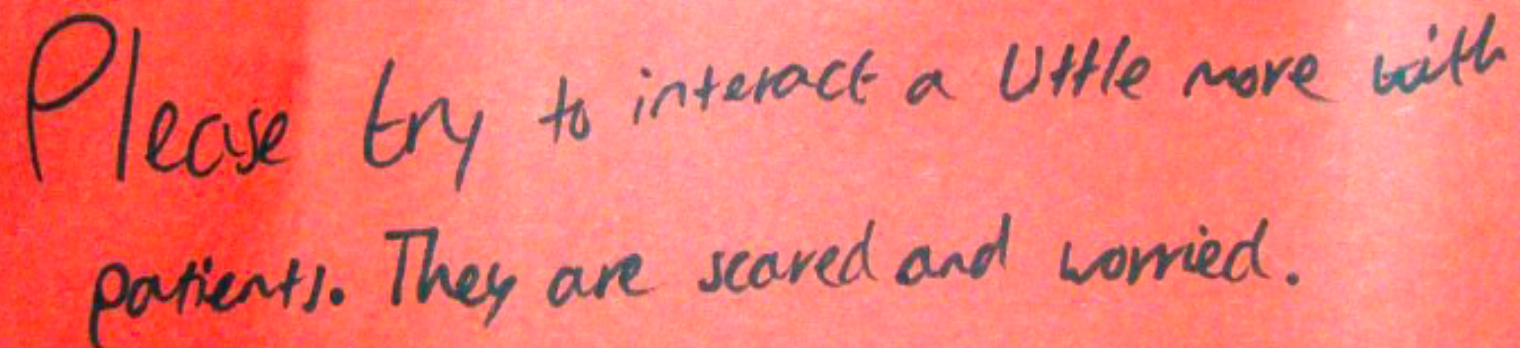 Please try to interact a little more with
patients. They are scared and worried.